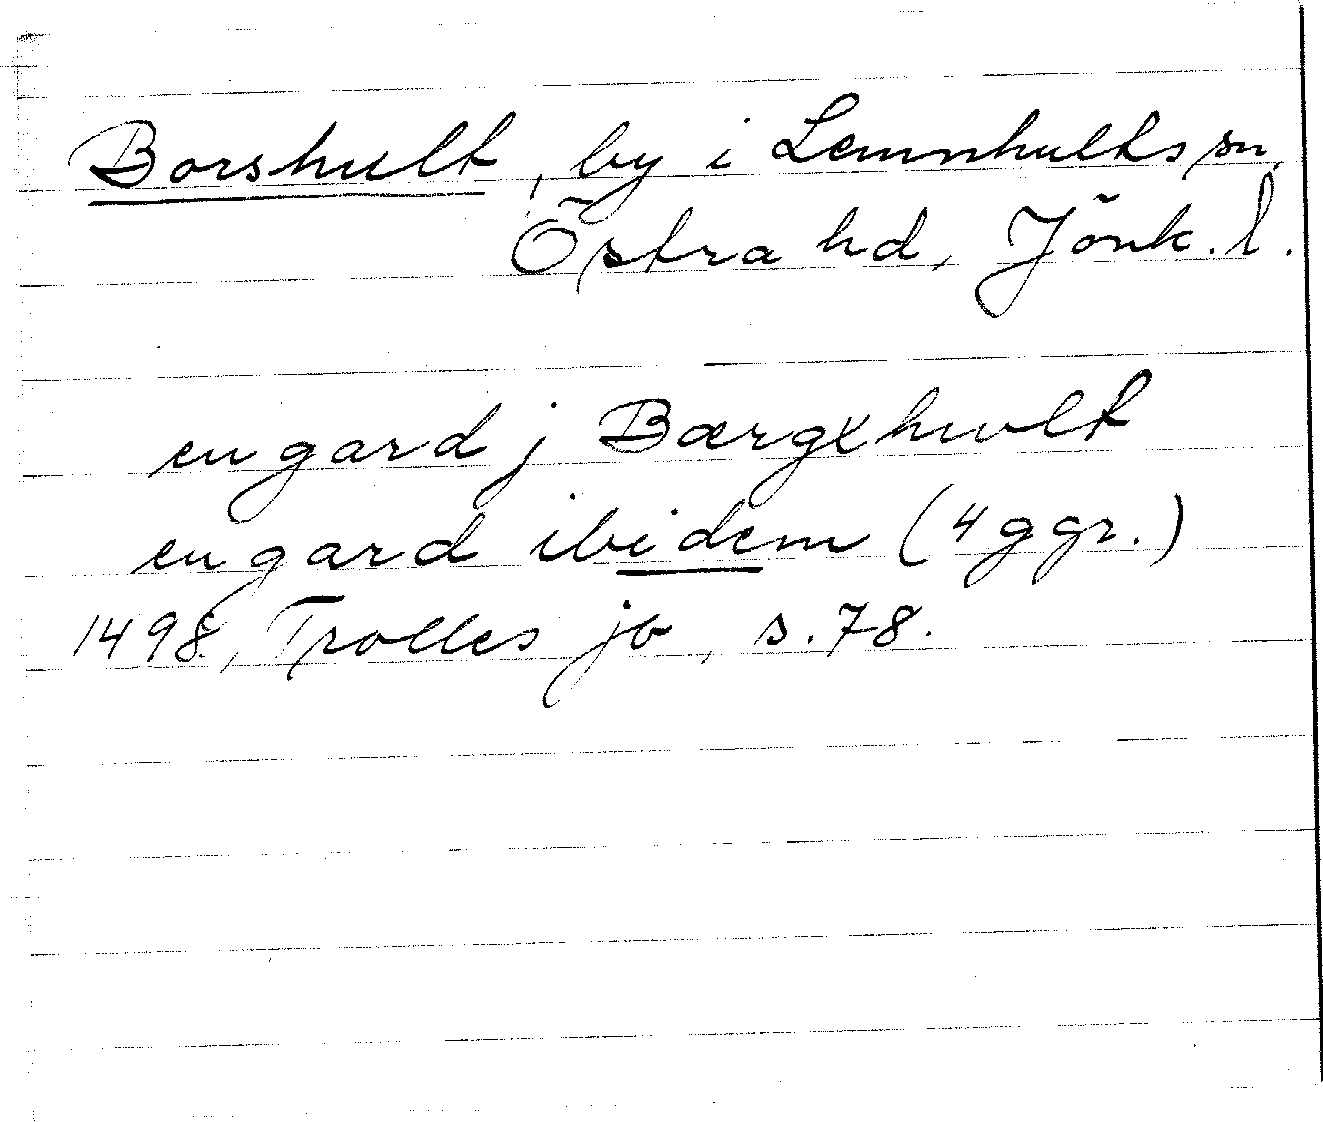 Borshult, by i Lemnhults sn,
Östra hd, Jönk. l.
en gard j Bærgxhwlt
en gard ibidem (4 ggr.)
1498, Trolles jb, s. 78.